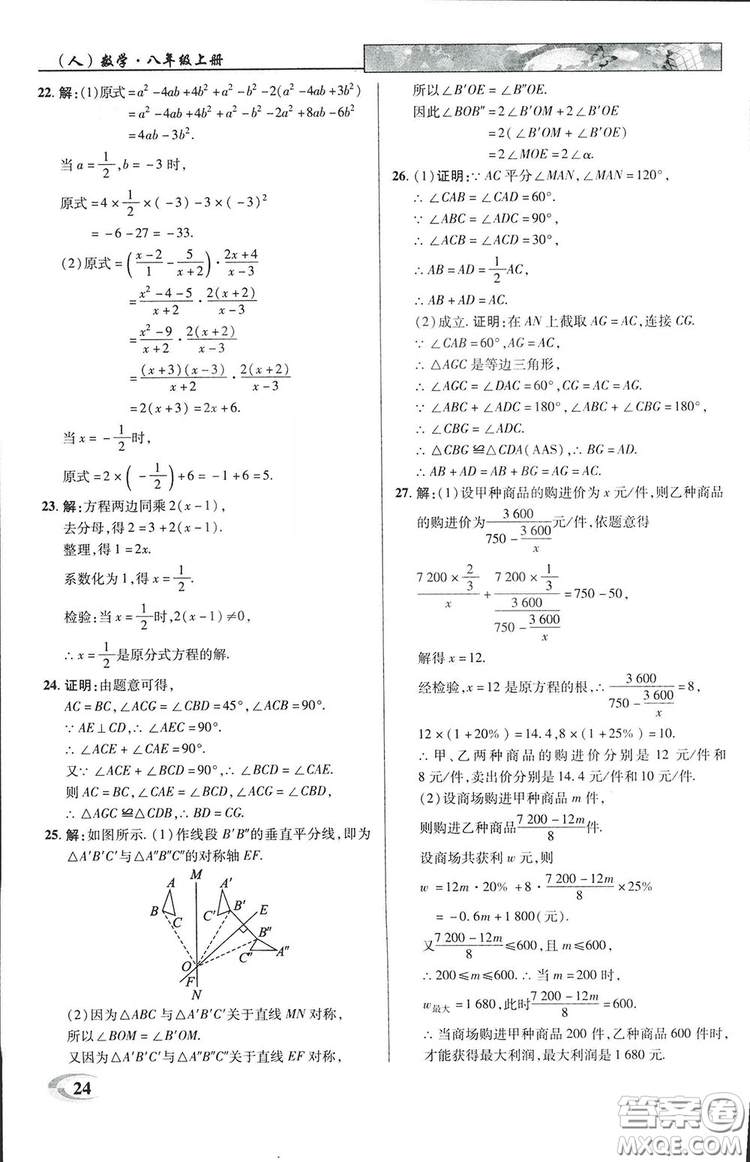 (人)数学·八年级上册
22. 解:(1)原式=a²-4ab+4b²+a²-b²-2(a²-4ab+3b²)
=a²-4ab+4b²+a²-b²-2a²+8ab-6b²
=4ab-3b².
当a=1/2,b=-3时,
原式=4×1/2×(-3)-3×(-3)²
=-6-27=-33.
(2)原式=((x-2)/1-5/(x+2))·(2x+4)/(x-3)
=(x²-4-5)/(x+2)·2(x+2)/(x-3)
=(x²-9)/(x+2)·2(x+2)/(x-3)
=(x+3)(x-3)/(x+2)·2(x+2)/(x-3)
=2(x+3)=2x+6.
当x=-1/2时,
原式=2×(-1/2)+6=-1+6=5.
23. 解:方程两边同乘2(x-1),
去分母,得2=3+2(x-1),
整理,得1=2x.
系数化为1,得x=1/2.
检验:当x=1/2时,2(x-1)≠0,
∴x=1/2是原分式方程的解.
24. 证明:由题意可得,
AC=BC,∠ACG=∠CBD=45°,∠ACB=90°.
∵AE⊥CD,∴∠AEC=90°.
∴∠ACE+∠CAE=90°.
又∵∠ACE+∠BCD=90°,∴∠BCD=∠CAE.
则AC=BC,∠CAE=∠BCD,∠ACG=∠CBD,
∴△AGC≌△CDB,∴BD=CG.
25. 解:如图所示.(1)作线段B′B″的垂直平分线,即为
△A′B′C′与△A″B″C″的对称轴EF.
M
A
A′
B
C
C′
B′
E
B″
C″
A″
O
F
N
(2)因为△ABC与△A′B′C′关于直线MN对称,
所以∠BOM=∠B′OM.
又因为△A′B′C′与△A″B″C″关于直线EF对称,
24
所以∠B′OE=∠B″OE.
因此∠BOB″=2∠B′OM+2∠B′OE
=2(∠B′OM+∠B′OE)
=2∠MOE=2∠α.
26. (1)证明:∵AC平分∠MAN,∠MAN=120°,
∴∠CAB=∠CAD=60°.
∵∠ABC=∠ADC=90°,
∴∠ACB=∠ACD=30°,
∴AB=AD=1/2AC,
∴AB+AD=AC.
(2)成立.证明:在AN上截取AG=AC,连接CG.
∵∠CAB=60°,AG=AC,
∴△AGC是等边三角形,
∴∠AGC=∠DAC=60°,CG=AC=AG.
∵∠ABC+∠ADC=180°,∠ABC+∠CBG=180°,
∴∠CBG=∠ADC.
∴△CBG≌△CDA(AAS),∴BG=AD.
∴AB+AD=AB+BG=AG=AC.
27. 解:(1)设甲种商品的购进价为x元/件,则乙种商品
的购进价为3 600/(750-3 600/x)元/件,依题意得
(7 200×2/3)/x+(7 200×1/3)/(3 600/(750-3 600/x))=750-50,
解得x=12.
经检验,x=12是原方程的根,∴3 600/(750-3 600/x)=8,
12×(1+20%)=14.4,8×(1+25%)=10.
∴甲、乙两种商品的购进价分别是12元/件和
8元/件,卖出价分别是14.4元/件和10元/件.
(2)设商场购进甲种商品m件,
则购进乙种商品(7 200-12m)/8件,
设商场共获利w元,则
w=12m·20%+8·(7 200-12m)/8×25%
=-0.6m+1 800(元).
又(7 200-12m)/8≤600,且m≤600,
∴200≤m≤600.∴当m=200时,
w最大=1 680,此时(7 200-12m)/8=600.
∴当商场购进甲种商品200件,乙种商品600件时,
才能获得最大利润,最大利润是1 680元.
答案卷
MXQE.COM